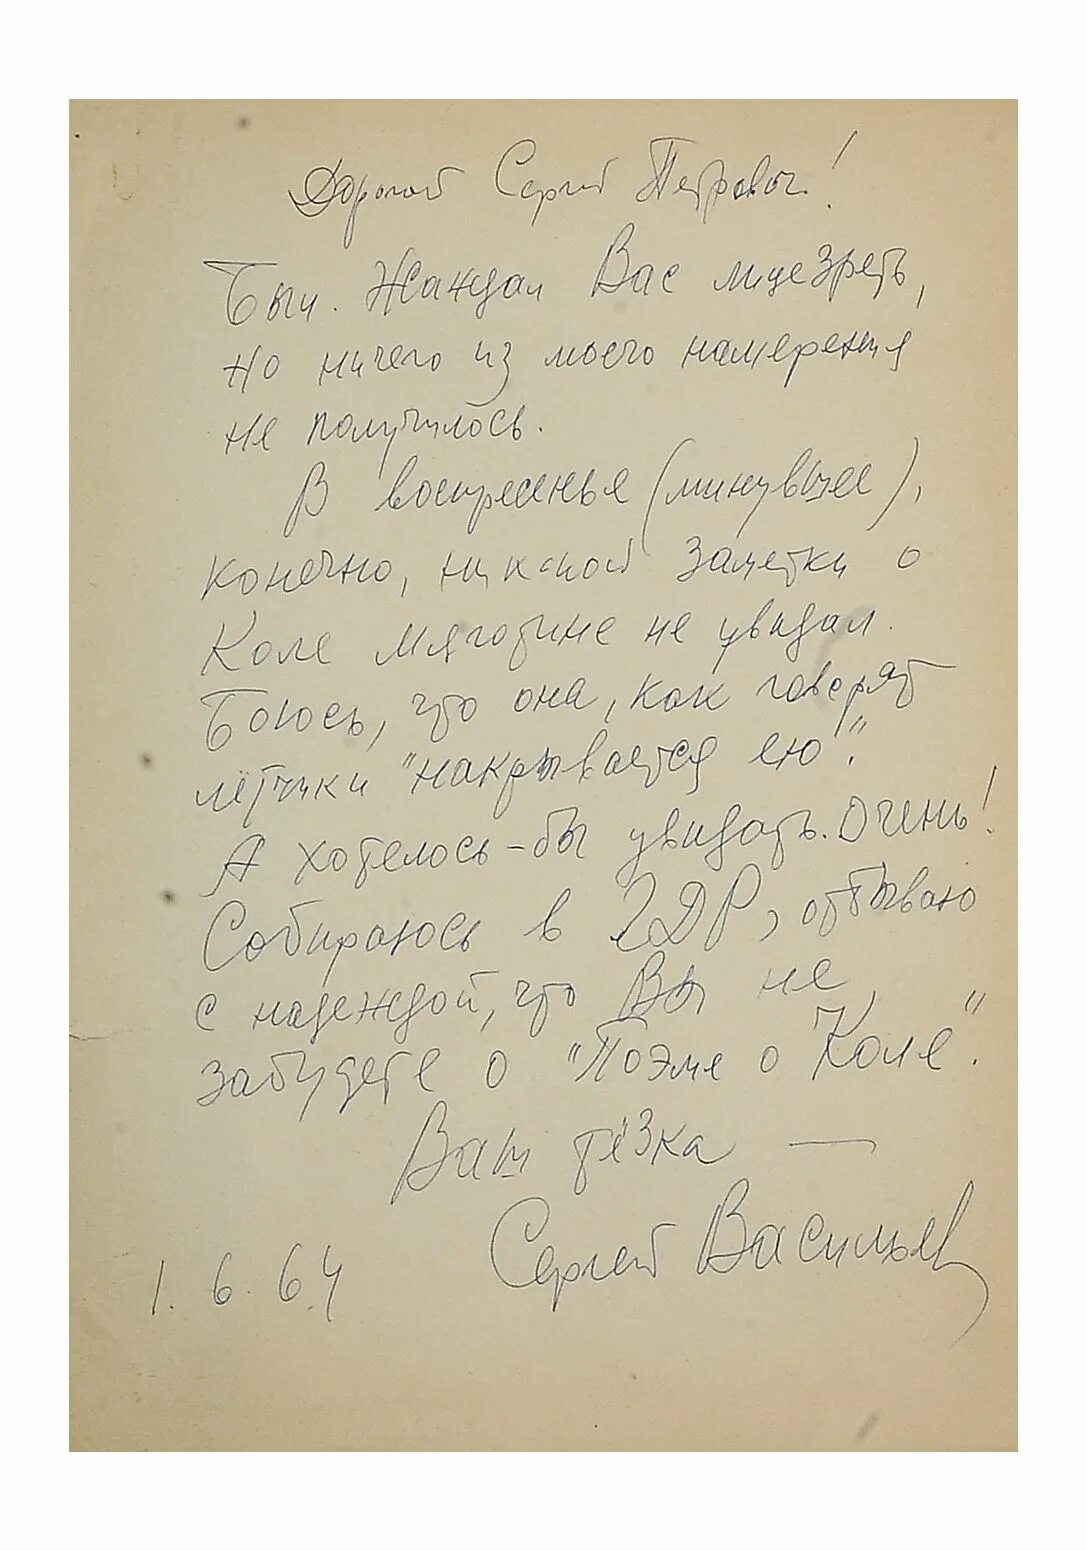 Дорогой Сергей Петрович!
Был. Жаждал Вас лицезреть,
но ничего из моего намерения
не получилось.
В воскресенье (минувшее),
конечно, никакой заметки о
Коле Мяготине не увидал.
Боюсь, что она, как говорят
лётчики "накрывается ею".
А хотелось-бы увидать. Очень!
Собираюсь в ГДР, отбываю
с надеждой, что Вы не
забудете о "Поэме о Коле".
Ваш тёзка —
Сергей Васильев
1. 6. 64